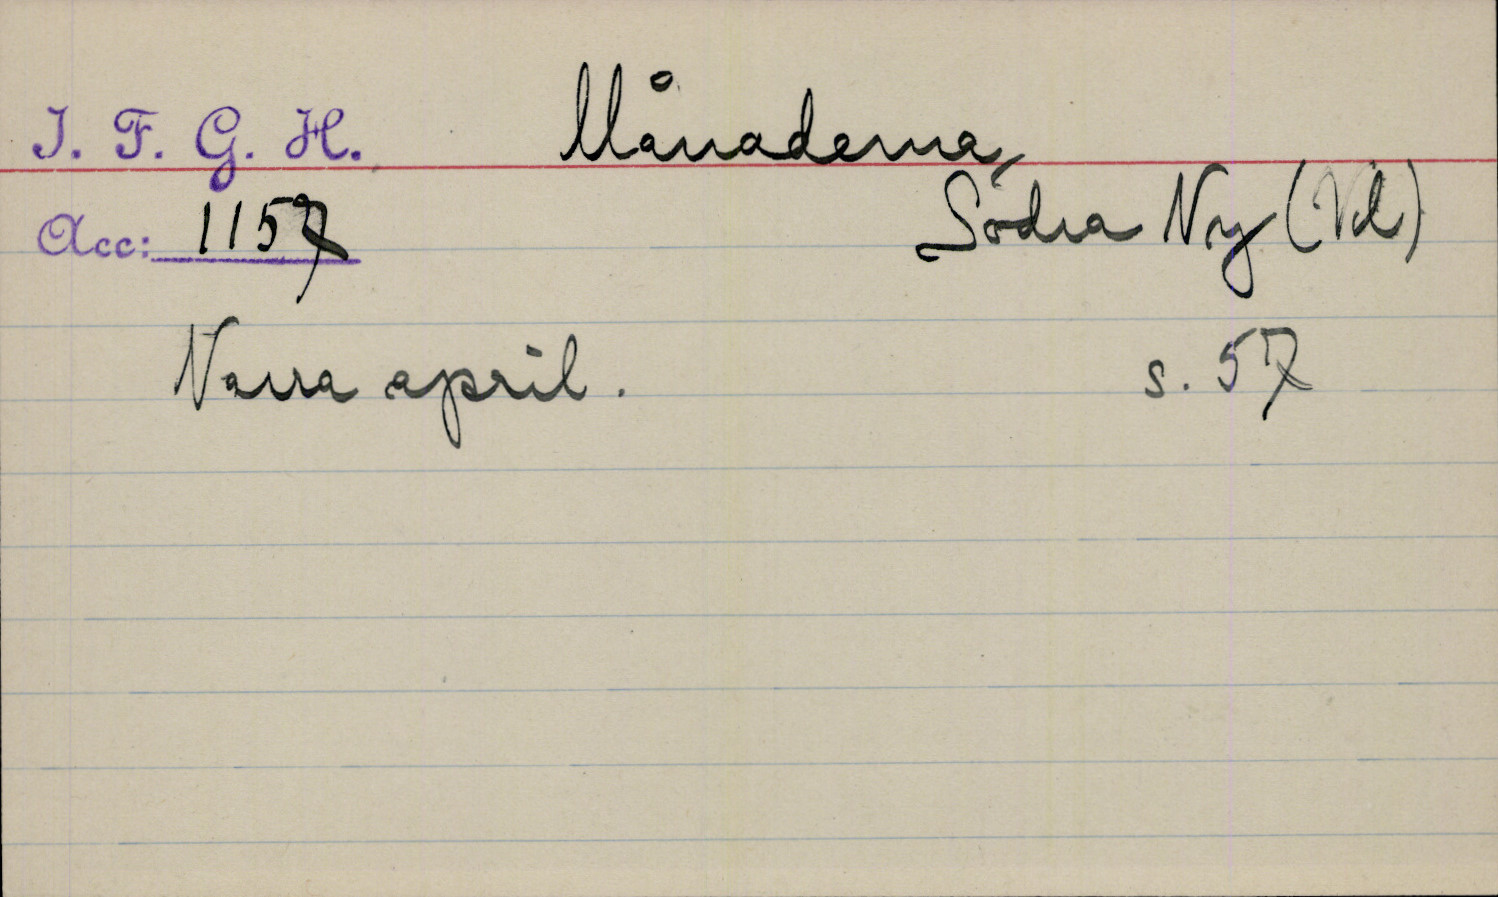 I. F. G. H. Månaderna,
Acc: 1157 Södra Ny (Vd)
Narra april. s. 57